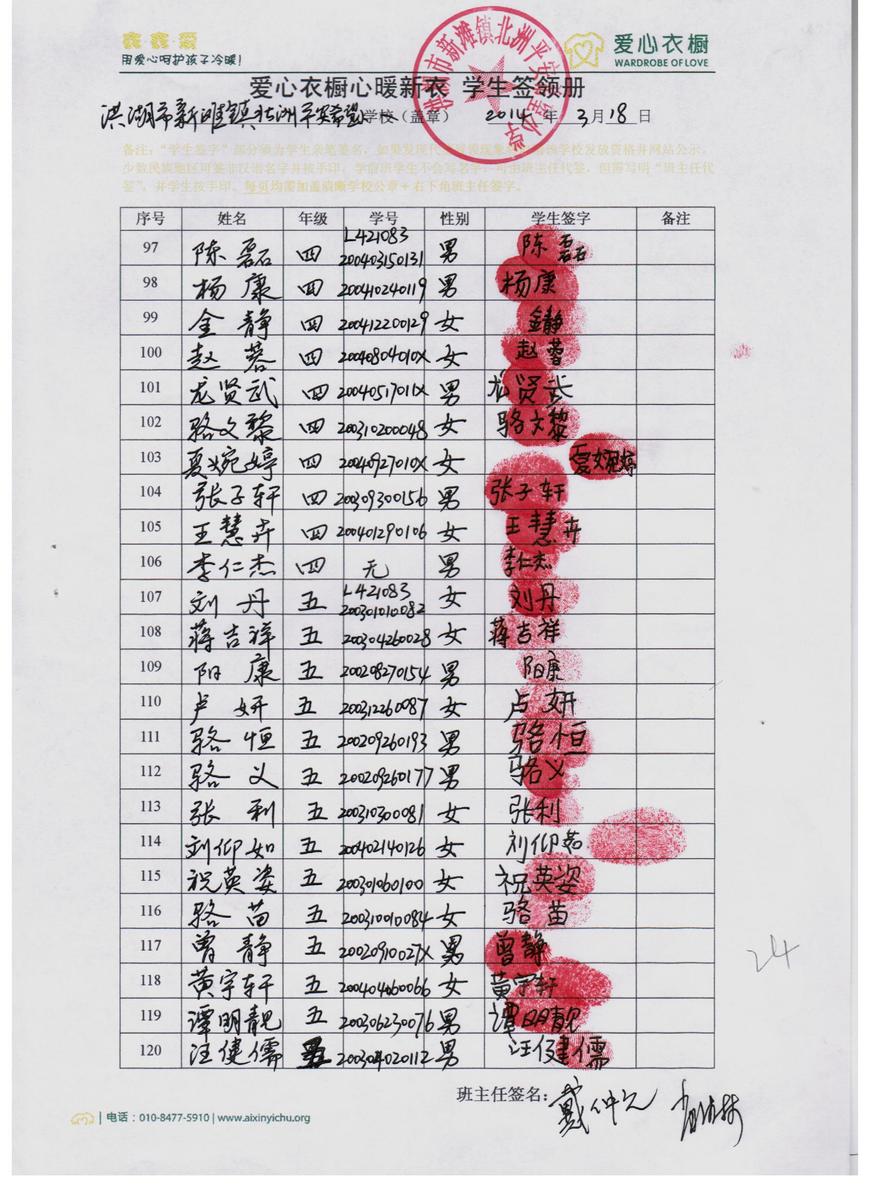 鑫鑫·爱
用爱心呵护孩子冷暖!
爱心衣橱
WARDROBE OF LOVE
爱心衣橱心暖新衣 学生签领册
洪湖市新滩镇北洲平安希望学校(盖章) 2014年3月18日
序号 姓名 年级 学号 性别 学生签字 备注
97 陈磊 四 L421083200403150131 男 陈磊
98 杨康 四 200410240119 男 杨康
99 金静 四 200412200129 女 金静
100 赵蓉 四 20040804010X 女 赵蓉
101 龙贤武 四 20040517011X 男 龙贤武
102 骆文黎 四 200310200048 女 骆文黎
103 夏婉婷 四 20040927010X 女 夏婉婷
104 张子轩 四 200309300156 男 张子轩
105 王慧卉 四 200401290106 女 王慧卉
106 李仁杰 四 无 男 李仁杰
107 刘丹 五 L421083200301010082 女 刘丹
108 蒋吉祥 五 200304260028 女 蒋吉祥
109 阳康 五 200208270154 男 阳康
110 卢妍 五 200312260087 女 卢妍
111 骆恒 五 200209260193 男 骆恒
112 骆义 五 200209260177 男 骆义
113 张利 五 200310300081 女 张利
114 刘仰如 五 200402140126 女 刘仰茹
115 祝英姿 五 200301060100 女 祝英姿
116 骆苗 五 200310010084 女 骆苗
117 曾静 五 20020910027X 男 曾静
118 黄宇轩 五 200404060066 女 黄宇轩
119 谭明靓 五 200306230076 男 谭明靓
120 汪健儒 五 200304020112 男 汪健儒
24
班主任签名:
电话:010-8477-5910 | www.aixinyichu.org